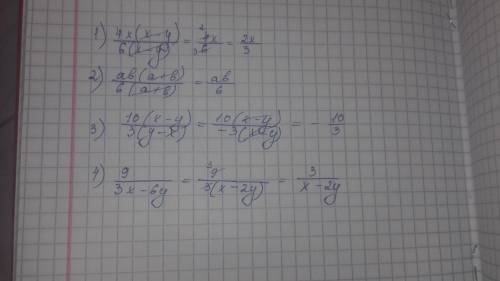 1) 4x(x-y)/6(x-y) = 4x/6 = 2x/3
2) ab(a+b)/6(a+b) = ab/6
3) 10(x-y)/3(y-x) = 10(x-y)/-3(x-y) = -10/3
4) 9/3x-6y = 9/3(x-2y) = 3/x-2y